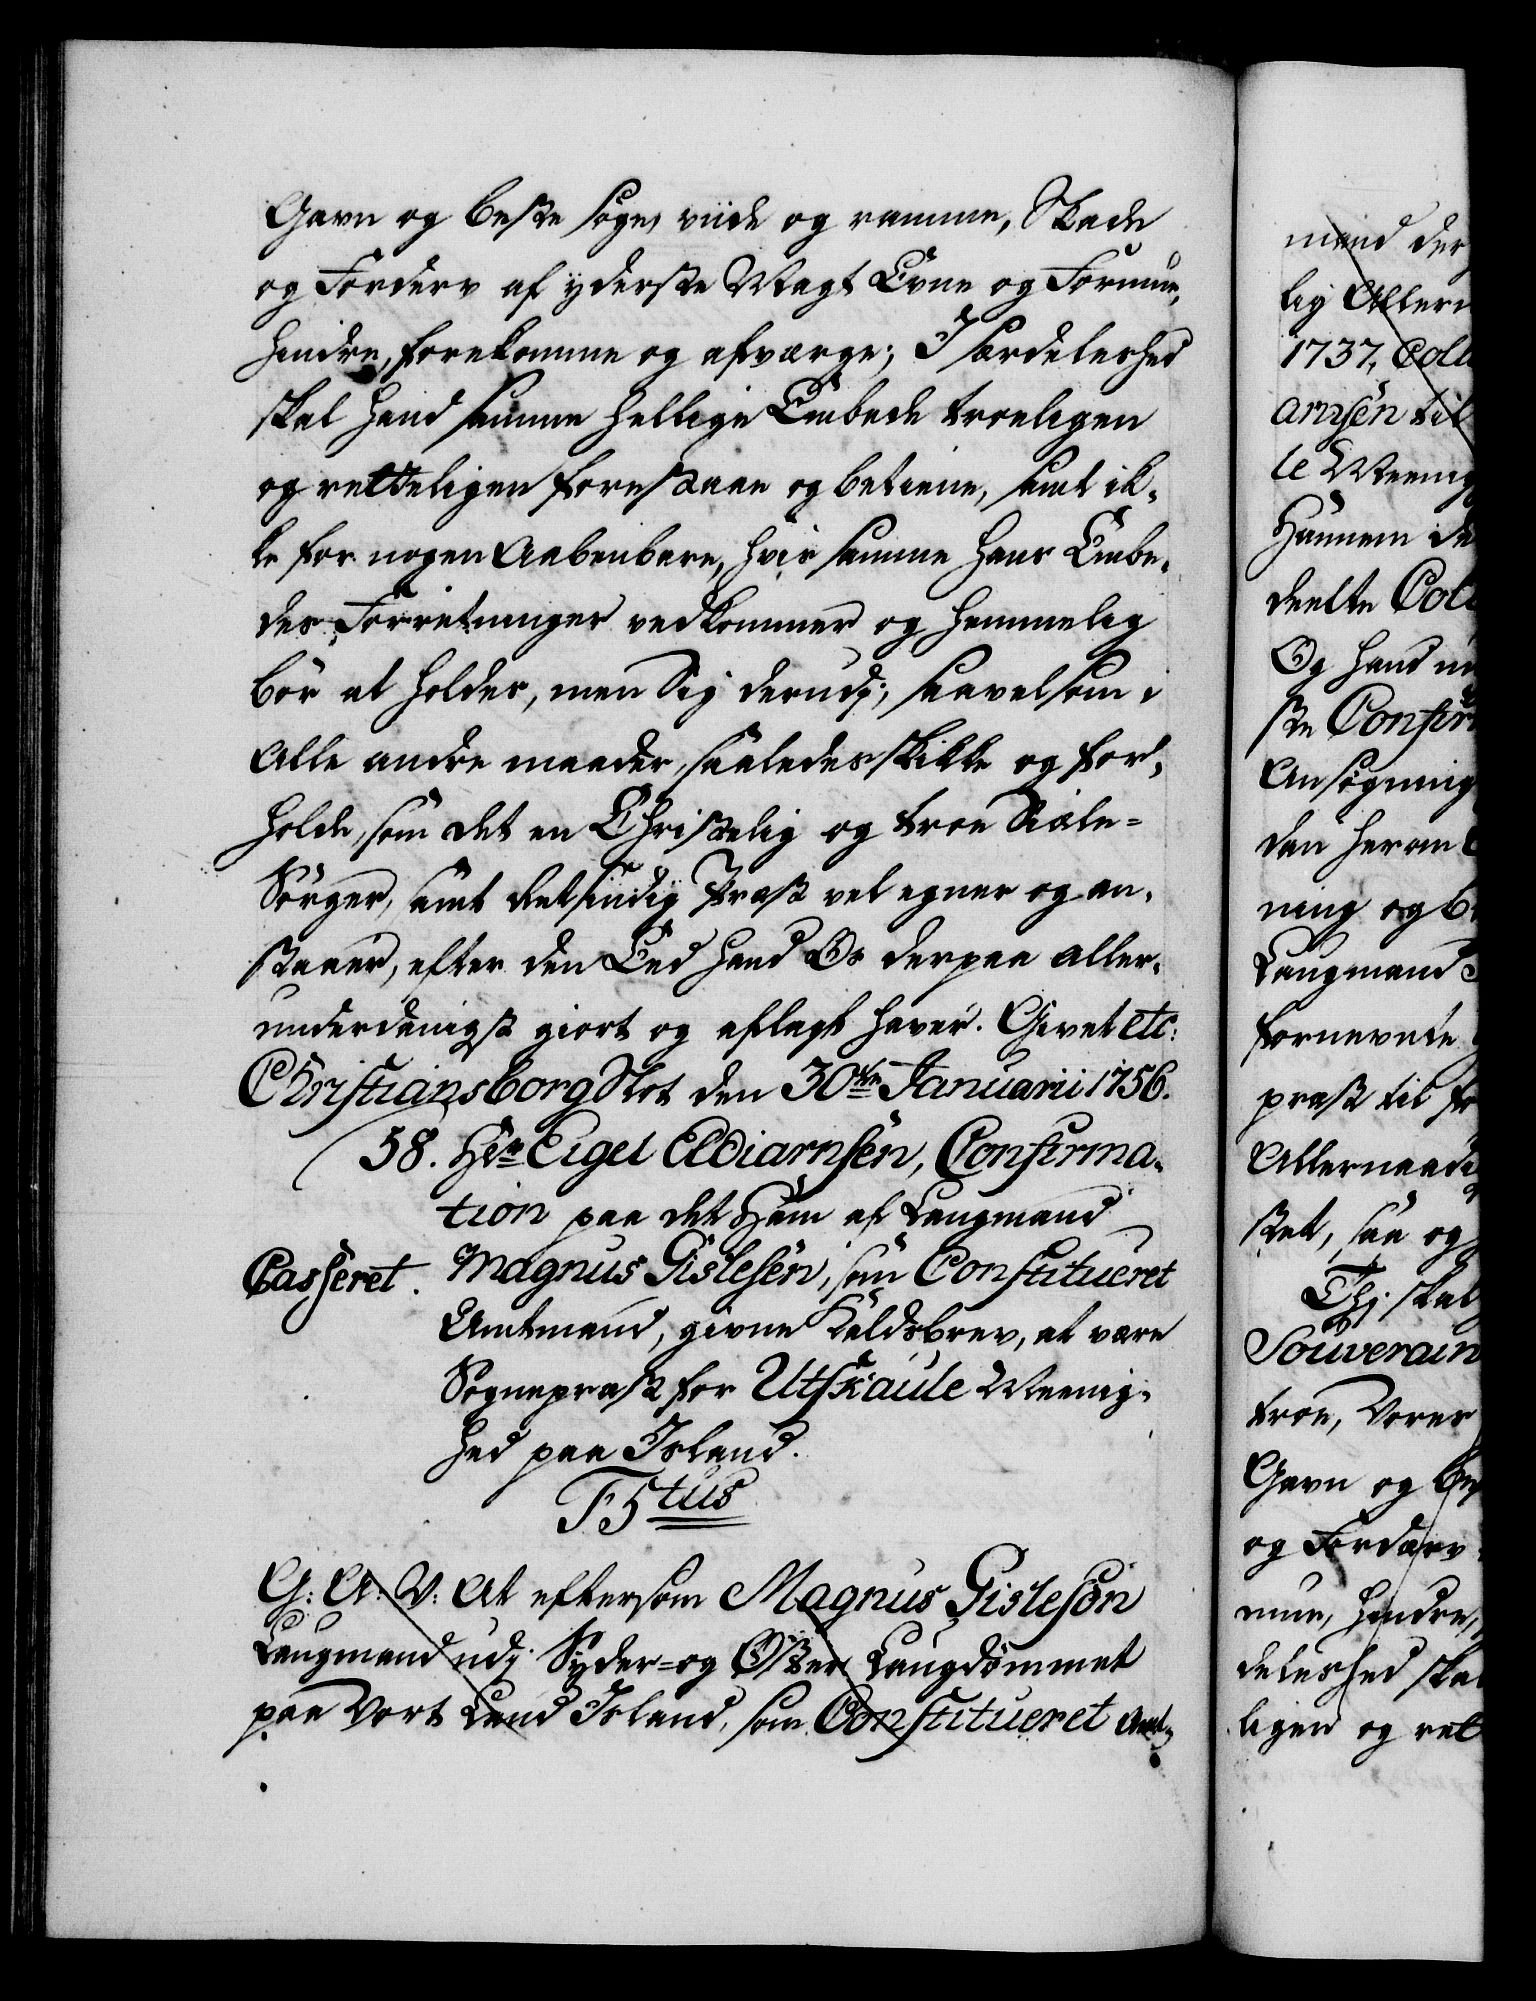 Gavn og beste søge, viide og ramme, Skade
og Forderv af yderste Magt Evne og Formue,
hindre, forekomme og afværge; I særdeleshed
skal hand samme hellige Embede troeligen
og retteligen forestaae og betiene, samt ik-
ke for nogen Aabenbare, hvis samme hans Embe-
des Forretninger vedkommer og hemmelig
bør at holdes, men Sig derudj, saavelsom i
Alle andre maader, saaledes skikke og for-
holde, som det en Christelig og troe Siæle-
Sørger, samt det sindig Præst vel egner og an-
staaer, efter den Eed hand Os derpaa aller-
underdanigst giort og aflagt haver. Givet etc:
Christiansborg Slot den 30te Januarii 1756.
58. Hr Eigel Eldiarnsen, Confirma-
tion paa det Ham af Laugmand
Casseret. Magnus Gislesen, som Constitueret
Amtmand, givne Kaldsbrev, at være
Sognepræst for Utskaule Meenig-
hed paa Island.
F5tus
G: A: V: At eftersom Magnus Gisleson
Laugmand udj Synder- og Øster Laugdømmet
paa Vort Land Island, som Constitueret Amt-
mand der
lig Allern
1737, Coll
arnsen til
le Meenig
Hannem de
deelte Coll
Og hand nu
ste Confir
Ansøgning
dan herom
ning og b
Laugmand
fornevnte
præst til
Allernaadi
stet, saa og
Thj skal
Souverain
troe, Vores
Gavn og be
og Fordærv
mue, hindre,
deleshed skal
ligen og ret